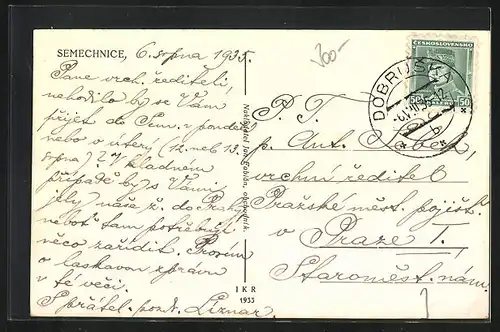 SEMECHNICE, 6. srpna 1935.
Pane vrch. řediteli,
nehodilo by se Vám
přijeti do Sem. v pondělí
nebo v úterý (12. neb 13.
srpna)? V kladném
případě by s Vámi
jely naše ž. do Prahy
neboť tam potřebují
něco zaříditi. Prosím
o laskavou zprávu
v té věci.
S přátel. pozd. Liznar
300-
Nakladatel Jan Fabián, obchodník.
I K R
1933
ČESKOSLOVENSKO
50 50
DOBRUŠKA
P. T.
p. Ant.
vrchní ředitel
Pražské měst. pojišť.
v Praze I.,
Staroměst. nám.